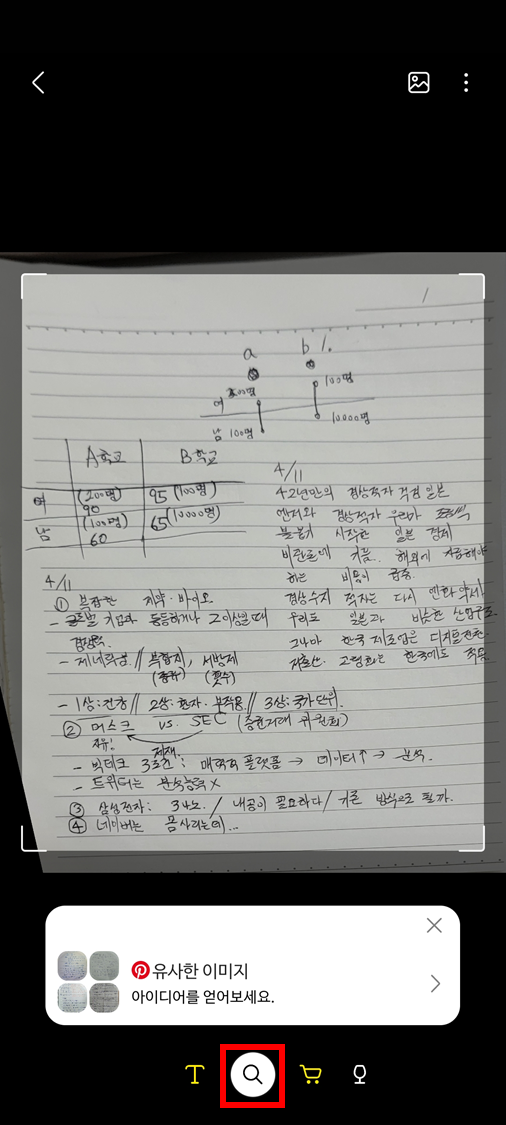 a b %.
여 200명 100명
남 100명 10000명
A학교 B학교
여 (200명) 90 95 (100명)
남 (100명) 60 65 (10000명)
4/11
42년만의 경상적자 걱정 일본
엔저와 경상적자 우려가
불붙기 시작한 일본 경제
비관론에 기름. 해외에 지급해야
하는 비용이 급증.
경상수지 적자는 다시 엔화 약세
우리도 일본과 비슷한 산업구조.
그나마 한국 제조업은 디지털전환.
저출산. 고령화는 한국에도 적용
4/11
① 복잡한 제약·바이오
- 글로벌 기업과 동등하거나 그이상일 때
경쟁력.
- 제네릭성 // 복합제, 서방제
(종류) (횟수)
- 1상: 건강 // 2상: 환자·부작용 // 3상: 국가단위.
② 머스크 vs. SEC (증권거래 위원회)
자유! 제재.
- 빅테크 3조건: 매력적 플랫폼 → 데이터↑ → 분석.
- 트위터는 분석능력 ×
③ 삼성전자: 3나노. / 내공이 필요하다 / 기존 방식으로 될까.
④ 네이버는 몸사리는데...
유사한 이미지
아이디어를 얻어보세요.
T